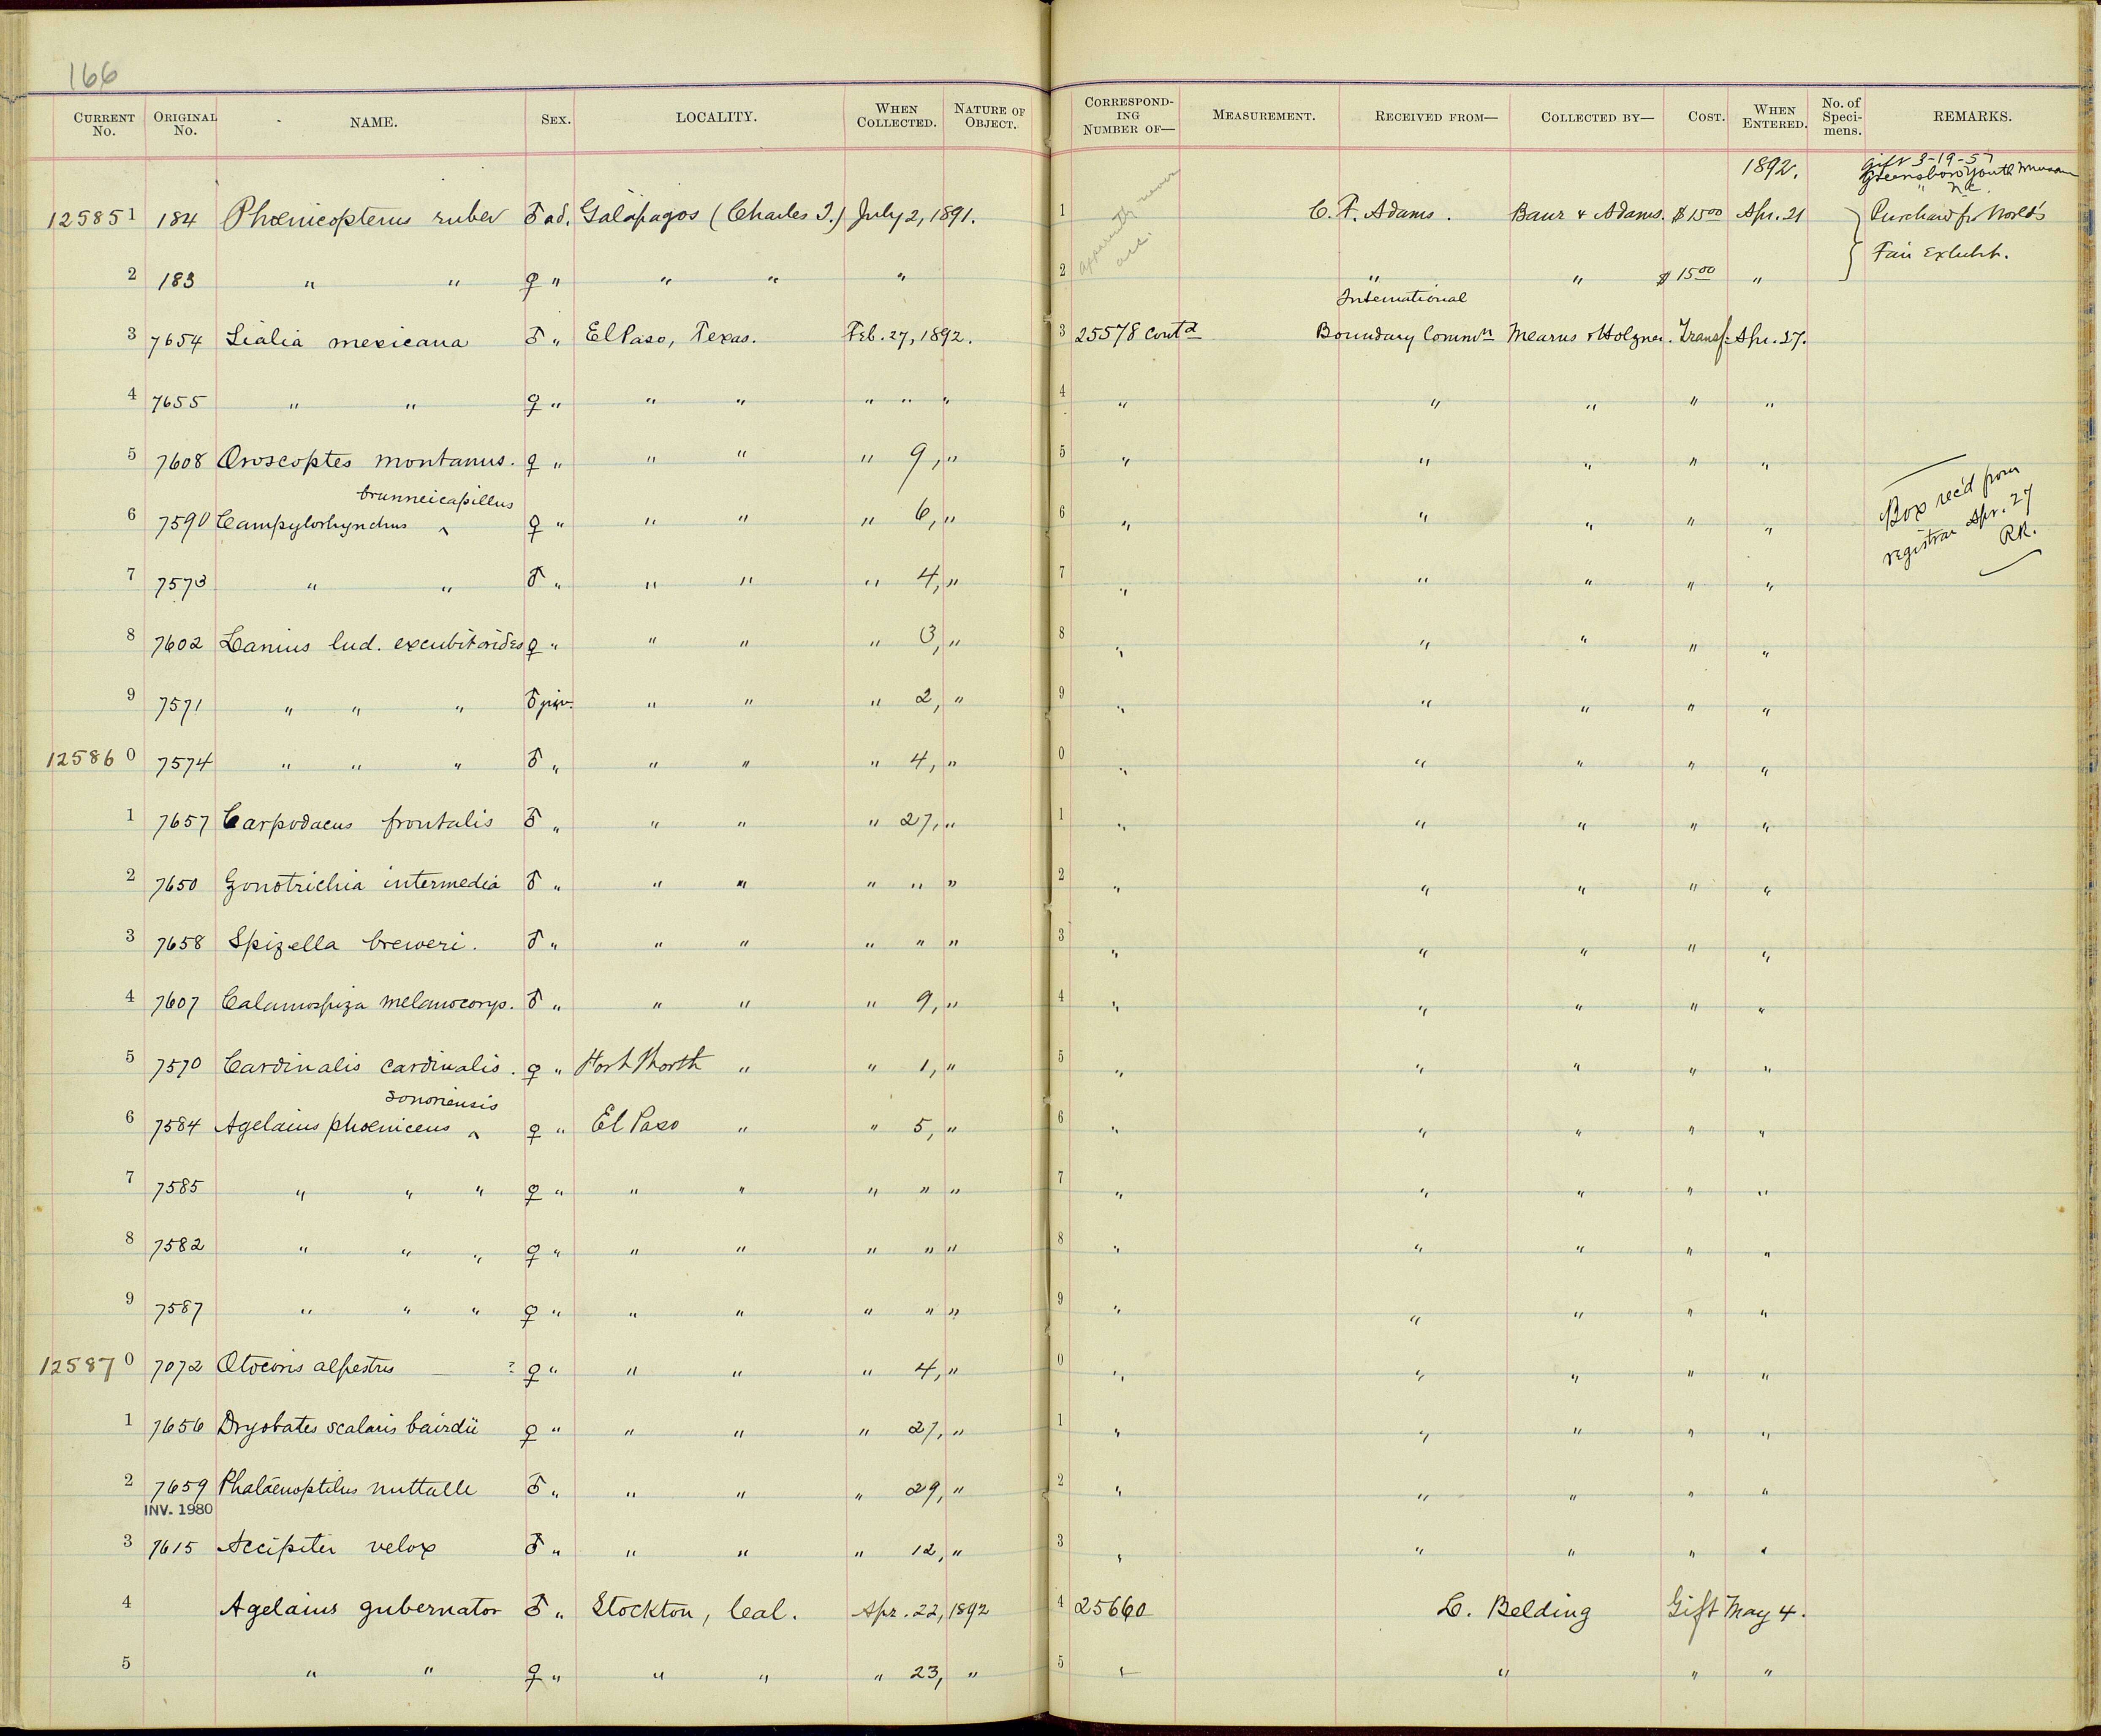 166
CURRENT No. ORIGINAL No. NAME. SEX. LOCALITY. WHEN COLLECTED. NATURE OF OBJECT. CORRESPONDING NUMBER OF— MEASUREMENT. RECEIVED FROM— COLLECTED BY— COST. WHEN ENTERED. No. of Specimens. REMARKS.
1892. Gift 3-19-57
Greensboro Youth Museum
" N.C.
12585 1 184 Phœnicopterus ruber ♂ ad. Galápagos (Charles I.) July 2, 1891. 1 apparently never acc. C. F. Adams. Baur & Adams. $15.00 Apr. 21 Purchased fr World's
2 183 " " ♀ " " " " 2 " " $15.00 " Fair Exhibit.
3 7654 Sialia mexicana ♂ " El Paso, Texas. Feb. 27, 1892. 3 25578 cont'd International Boundary Comm'n Mearns & Holzner. Transf. Apr. 27.
4 7655 " " ♀ " " " " " " 4 " " " " "
5 7608 Oroscoptes montanus. ♀ " " " " 9, " 5 " " " " "
6 7590 Campylorhynchus brunneicapillus ♀ " " " " 6, " 6 " " " " " Box rec'd from
registrar Apr. 27
RR.
7 7573 " " ♂ " " " " 4, " 7 " " " " "
8 7602 Lanius lud. excubitorides ♀ " " " " 3, " 8 " " " " "
9 7571 " " " ♂ juv. " " " 2, " 9 " " " " "
12586 0 7574 " " " ♂ " " " " 4, " 0 " " " " "
1 7657 Carpodacus frontalis ♂ " " " " 27, " 1 " " " " "
2 7650 Zonotrichia intermedia ♂ " " " " " " 2 " " " " "
3 7658 Spizella breweri. ♂ " " " " " " 3 " " " " "
4 7607 Calamospiza melanocorys. ♂ " " " " 9, " 4 " " " " "
5 7570 Cardinalis cardinalis. ♀ " Fort Worth " " 1, " 5 " " " " "
6 7584 Agelaius phœniceus sonoriensis ♀ " El Paso " " 5, " 6 " " " " "
7 7585 " " " ♀ " " " " " " 7 " " " " "
8 7582 " " " ♀ " " " " " " 8 " " " " "
9 7587 " " " ♀ " " " " " " 9 " " " " "
12587 0 7072 Otocoris alpestris — ? ♀ " " " " 4, " 0 " " " " "
1 7656 Dryobates scalaris bairdii ♀ " " " " 27, " 1 " " " " "
2 7659 Phalænoptilus nuttalli ♂ " " " " 29, " 2 " " " " "
INV. 1980
3 7615 Accipiter velox ♂ " " " " 12, " 3 " " " " "
4 Agelaius gubernator ♂ " Stockton, Cal. Apr. 22, 1892 4 25660 L. Belding Gift May 4.
5 " " ♀ " " " " 23, " 5 " " " "